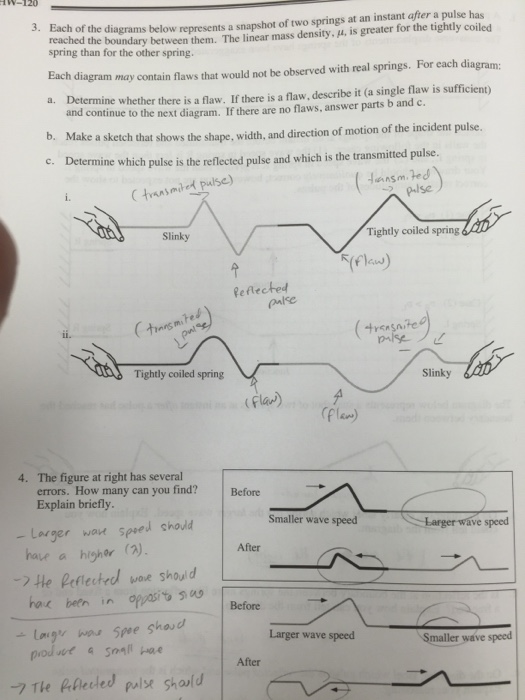 HW-120
3. Each of the diagrams below represents a snapshot of two springs at an instant after a pulse has
reached the boundary between them. The linear mass density, μ, is greater for the tightly coiled
spring than for the other spring.
Each diagram may contain flaws that would not be observed with real springs. For each diagram:
a. Determine whether there is a flaw. If there is a flaw, describe it (a single flaw is sufficient)
and continue to the next diagram. If there are no flaws, answer parts b and c.
b. Make a sketch that shows the shape, width, and direction of motion of the incident pulse.
c. Determine which pulse is the reflected pulse and which is the transmitted pulse.
i.
(transmited pulse)
(transmited)
pulse
Slinky
Tightly coiled spring
(flaw)
Reflected
pulse
ii.
(transmited
pulse)
(transmited)
pulse
Tightly coiled spring
Slinky
(flaw)
(flaw)
4. The figure at right has several
errors. How many can you find?
Explain briefly.
Before
Smaller wave speed
Larger wave speed
After
- Larger wave speed should
have a higher (λ).
-> the Reflected wave should
have been in opposite
Before
Larger wave speed
Smaller wave speed
After
- should
produce a small
-> The Reflected pulse should